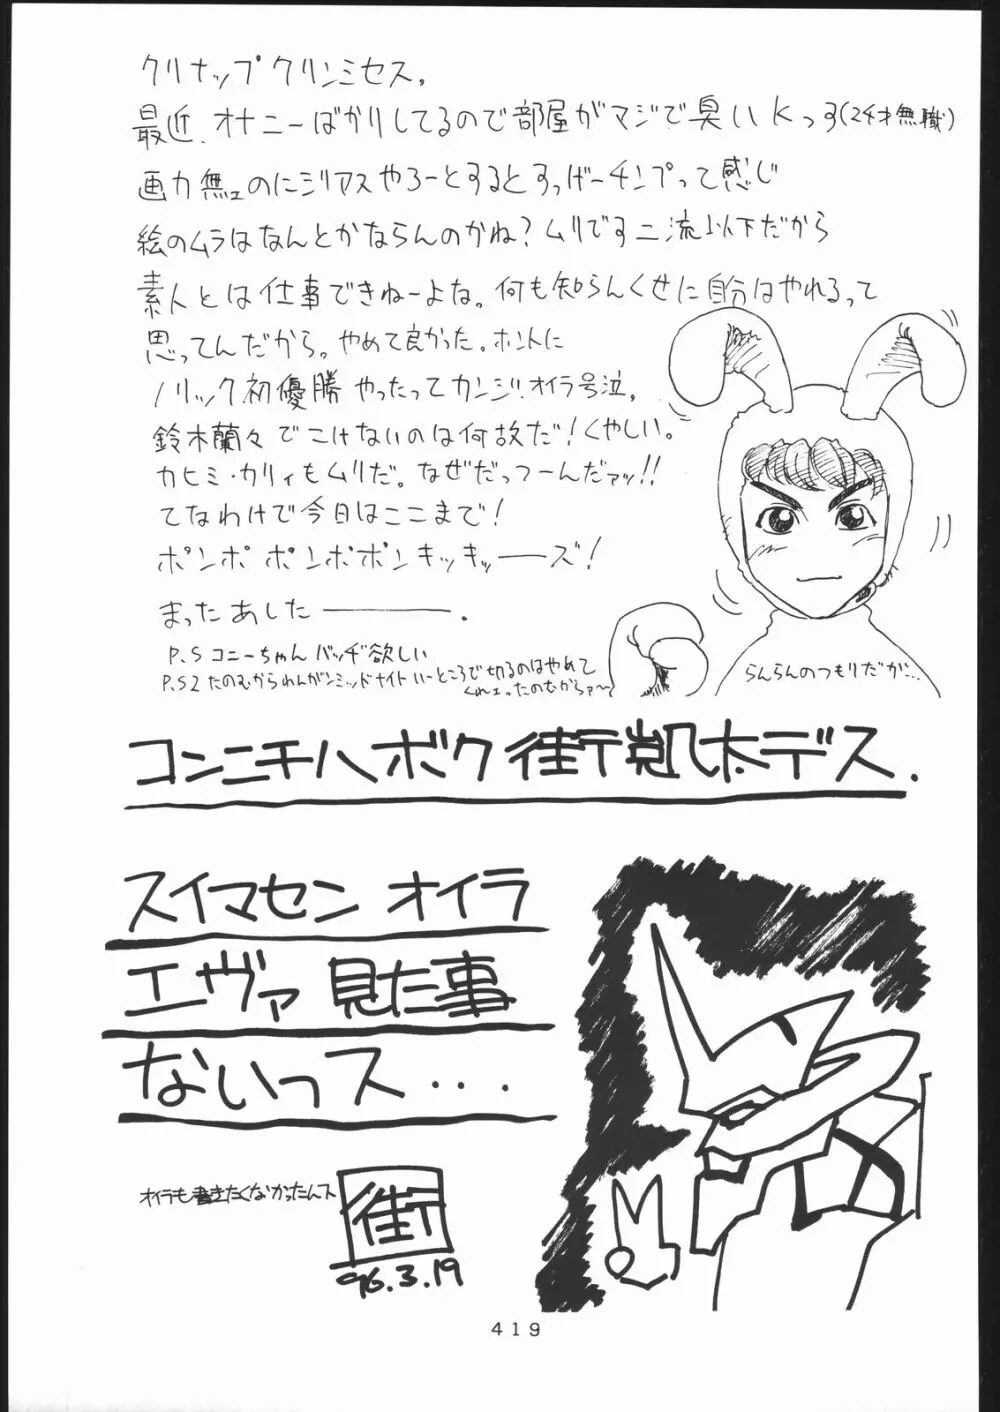 クリナップクリンミセス。
最近、オナニーばかりしてるので部屋がマジで臭いKっす(24才無職)
画力無ェのにシリアスやろーとするとすっげーチンプって感じ
絵のムラはなんとかならんのかね?ムリです二流以下だから
素人とは仕事できねーよな。何も知らんくせに自分はやれるって
思ってんだから。やめて良かった。ホントに
ノリック初優勝やったってカンジ!オイラ号泣。
鈴木蘭々でこけないのは何故だ!くやしい。
カヒミ・カリィもムリだ。なぜだっつーんだァッ!!
てなわけで今日はここまで!
ポンポポンポポンキッキッーーズ!
まったあしたーーー。
P.S コニーちゃんバッヂ欲しい
P.S2 たのむからわんがんミッドナイトいーところで切るのはやめて
くれェったのむからァ〜
らんらんのつもりだが…
コンニチハボク街凱太デス.
スイマセン オイラ
エヴァ 見た事
ないっス...
オイラも書きたくなかったんス
街
'96.3.19
419